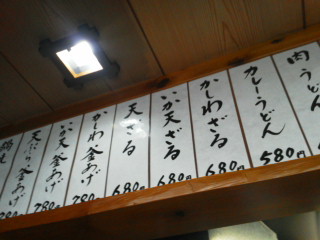 肉うどん
カレーうどん
580円
かしわざる
680円
いか天ざる
680円
天ざる
680円
かしわ釜あげ
780円
いか天釜あげ
780円
釜あげ
780円